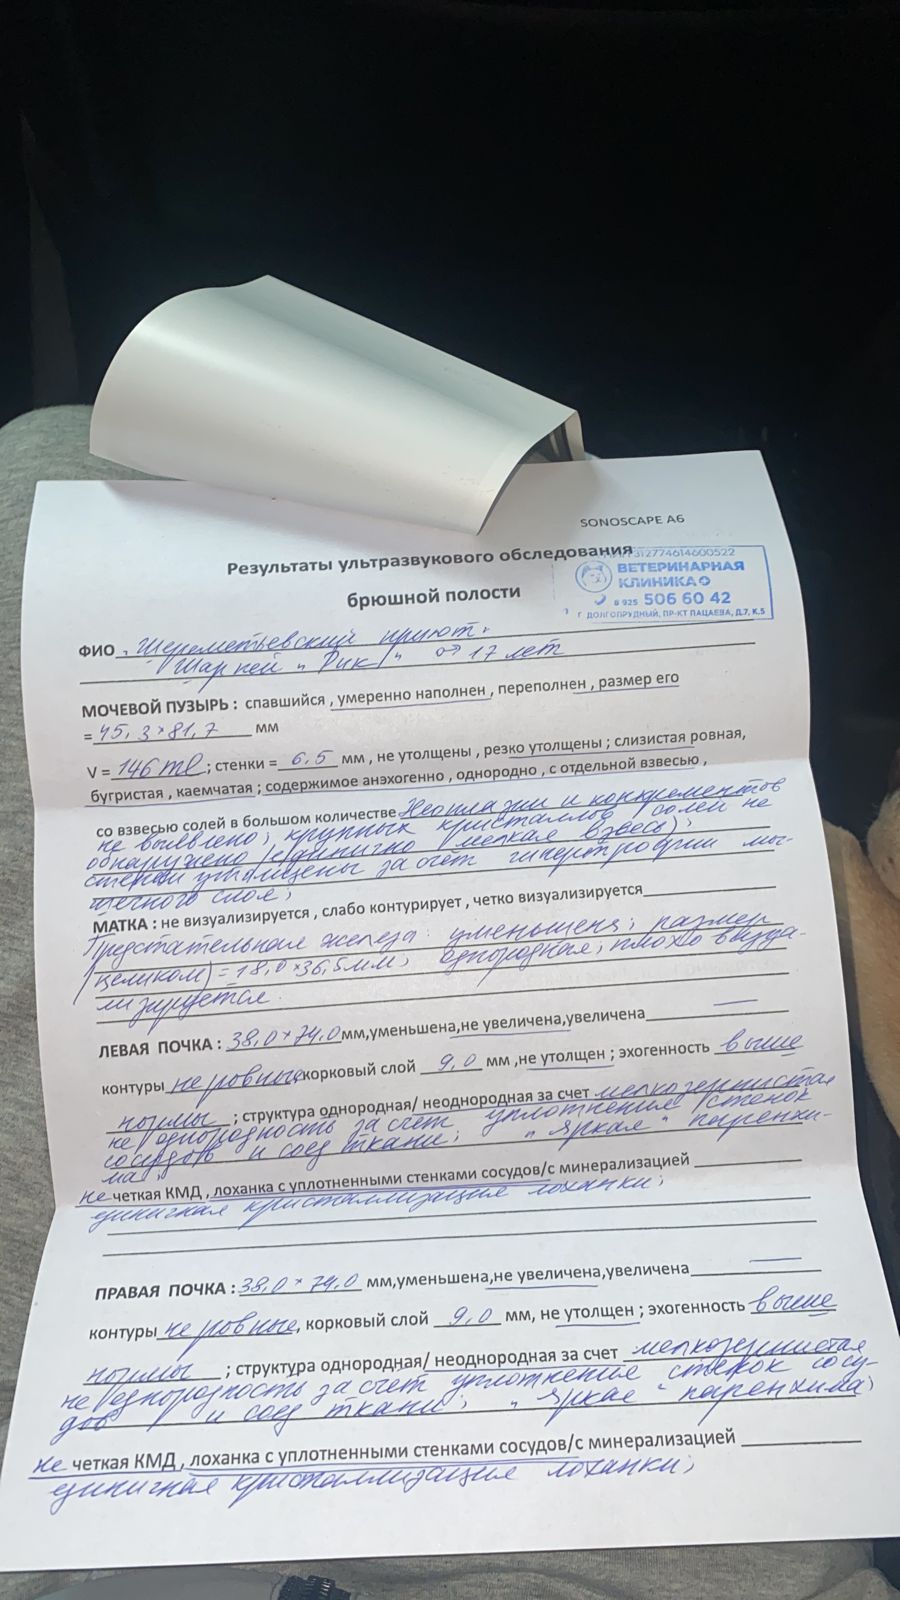 SONOSCAPE A6
Результаты ультразвукового обследования
брюшной полости
312774614600522
ВЕТЕРИНАРНАЯ
КЛИНИКА
8 925 506 60 42
Г ДОЛГОПРУДНЫЙ, ПР-КТ ПАЦАЕВА, Д.7, К.5
ФИО Шереметьевский приют.
Шарпей "Рик" 17 лет
МОЧЕВОЙ ПУЗЫРЬ : спавшийся , умеренно наполнен , переполнен , размер его
= 45,3 × 81,7 мм
V = 146 ml ; стенки = 6,5 мм , не утолщены , резко утолщены ; слизистая ровная,
бугристая , каемчатая ; содержимое анэхогенно , однородно , с отдельной взвесью ,
со взвесью солей в большом количестве Неоплазии и конкрементов
не выявлено; крупных кристаллов солей не
обнаружено (единично мелкая взвесь);
стенки утолщены за счёт гипертрофии мы-
шечного слоя;
МАТКА : не визуализируется , слабо контурирует , четко визуализируется
Предстательная железа: уменьшена; размер
(целиком) = 18,0 × 36,5 мм; однородная; плохо визуа-
лизируется.
ЛЕВАЯ ПОЧКА : 38,0 × 74,0 мм,уменьшена,не увеличена,увеличена
контуры не ровные, корковый слой 9,0 мм ,не утолщен ; эхогенность выше
нормы ; структура однородная/ неоднородная за счет мелкозернистая
неоднородность за счёт уплотнения стенок
сосудов и соед ткани; "яркая" паренхи-
ма;
не четкая КМД , лоханка с уплотненными стенками сосудов/с минерализацией
единичная кристаллизация лоханки;
ПРАВАЯ ПОЧКА : 38,0 × 74,0 мм,уменьшена,не увеличена,увеличена
контуры не ровные, корковый слой 9,0 мм, не утолщен ; эхогенность выше
нормы ; структура однородная/ неоднородная за счет мелкозернистая
неоднородность за счет уплотнение стенок сосу-
дов и соед ткани; "яркая" паренхима;
не четкая КМД , лоханка с уплотненными стенками сосудов/с минерализацией
единичная кристаллизация лоханки;